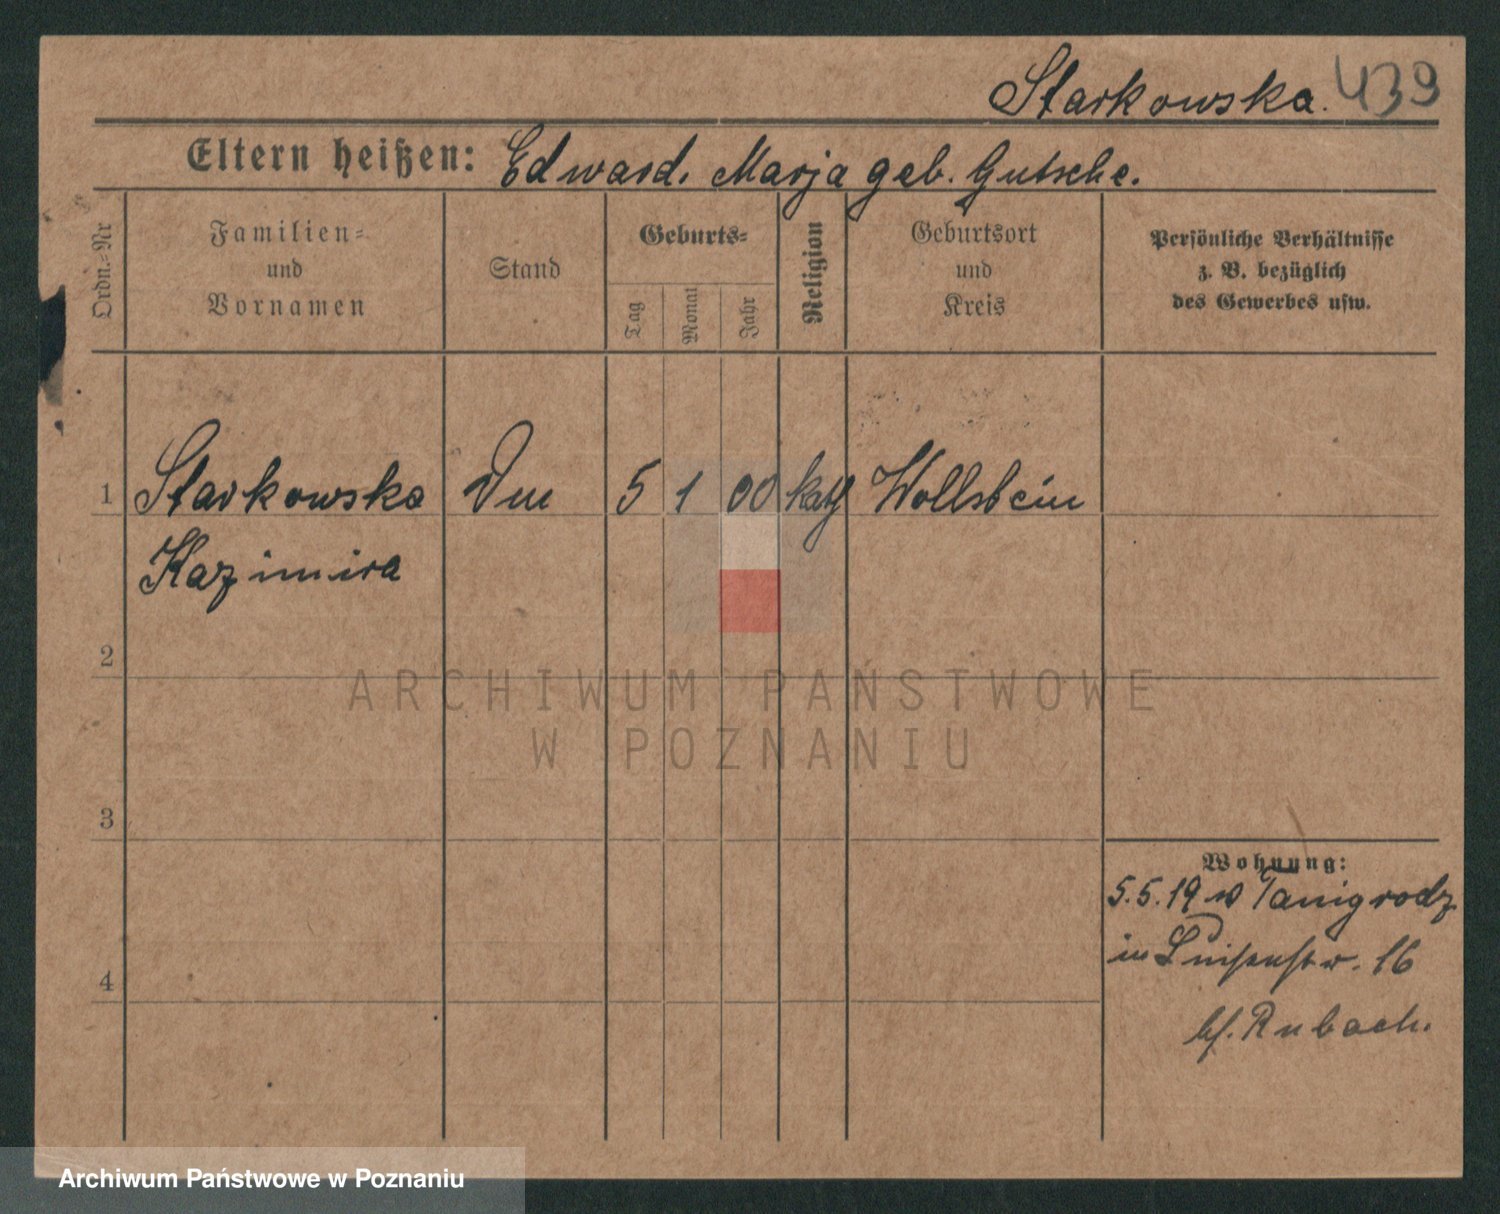 Starkowska. 439
Eltern heißen: Edward. Marja geb. Gutsche.
Ordn.-Nr
Familien-
und
Vornamen
Stand
Geburts-
Tag
Monat
Jahr
Religion
Geburtsort
und
Kreis
Persönliche Verhältnisse
z. B. bezüglich
des Gewerbes usw.
1 Starkowska 5 1 00 kath Wollstein
Kazimira
2
3
4
Wohnung:
5.5.19 Janigrodz
in Luisenstr. 16
bf. Rubach.
ARCHIWUM PAŃSTWOWE
W POZNANIU
Archiwum Państwowe w Poznaniu